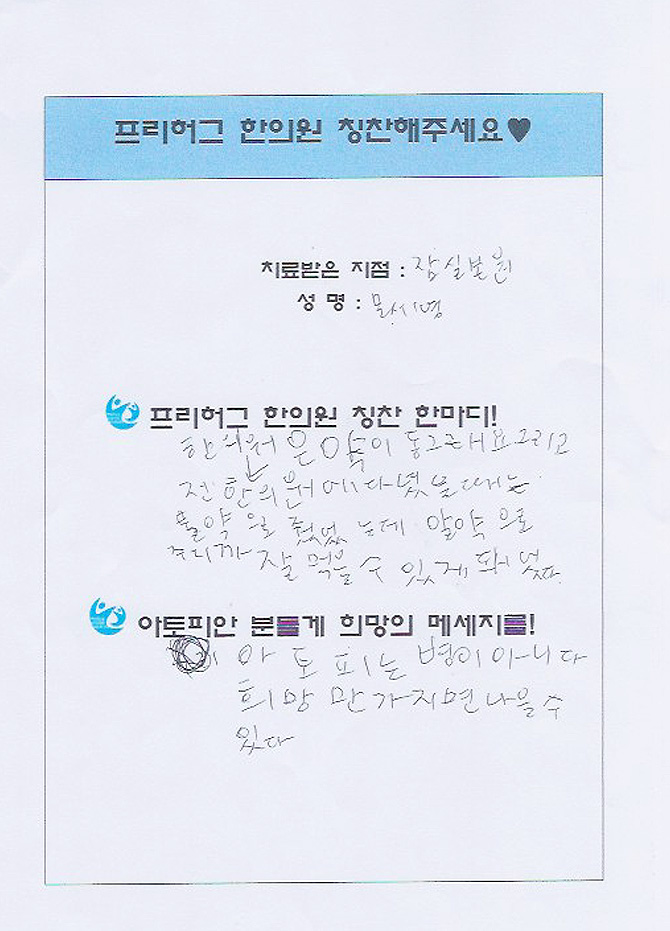 프리허그 한의원 칭찬해주세요♥
치료받은 지점 : 잠실본원
성 명 : 문시영
프리허그 한의원 칭찬 한마디!
한의원은 약이 동그래요 그리고
전 한의원에 다녔을때는
물약을 줬었는데 알약으로
주니까 잘 먹을 수 있게 돼었다.
아토피안 분들게 희망의 메세지를!
아토피는 병이아니다
희망만가지면나을수
있다